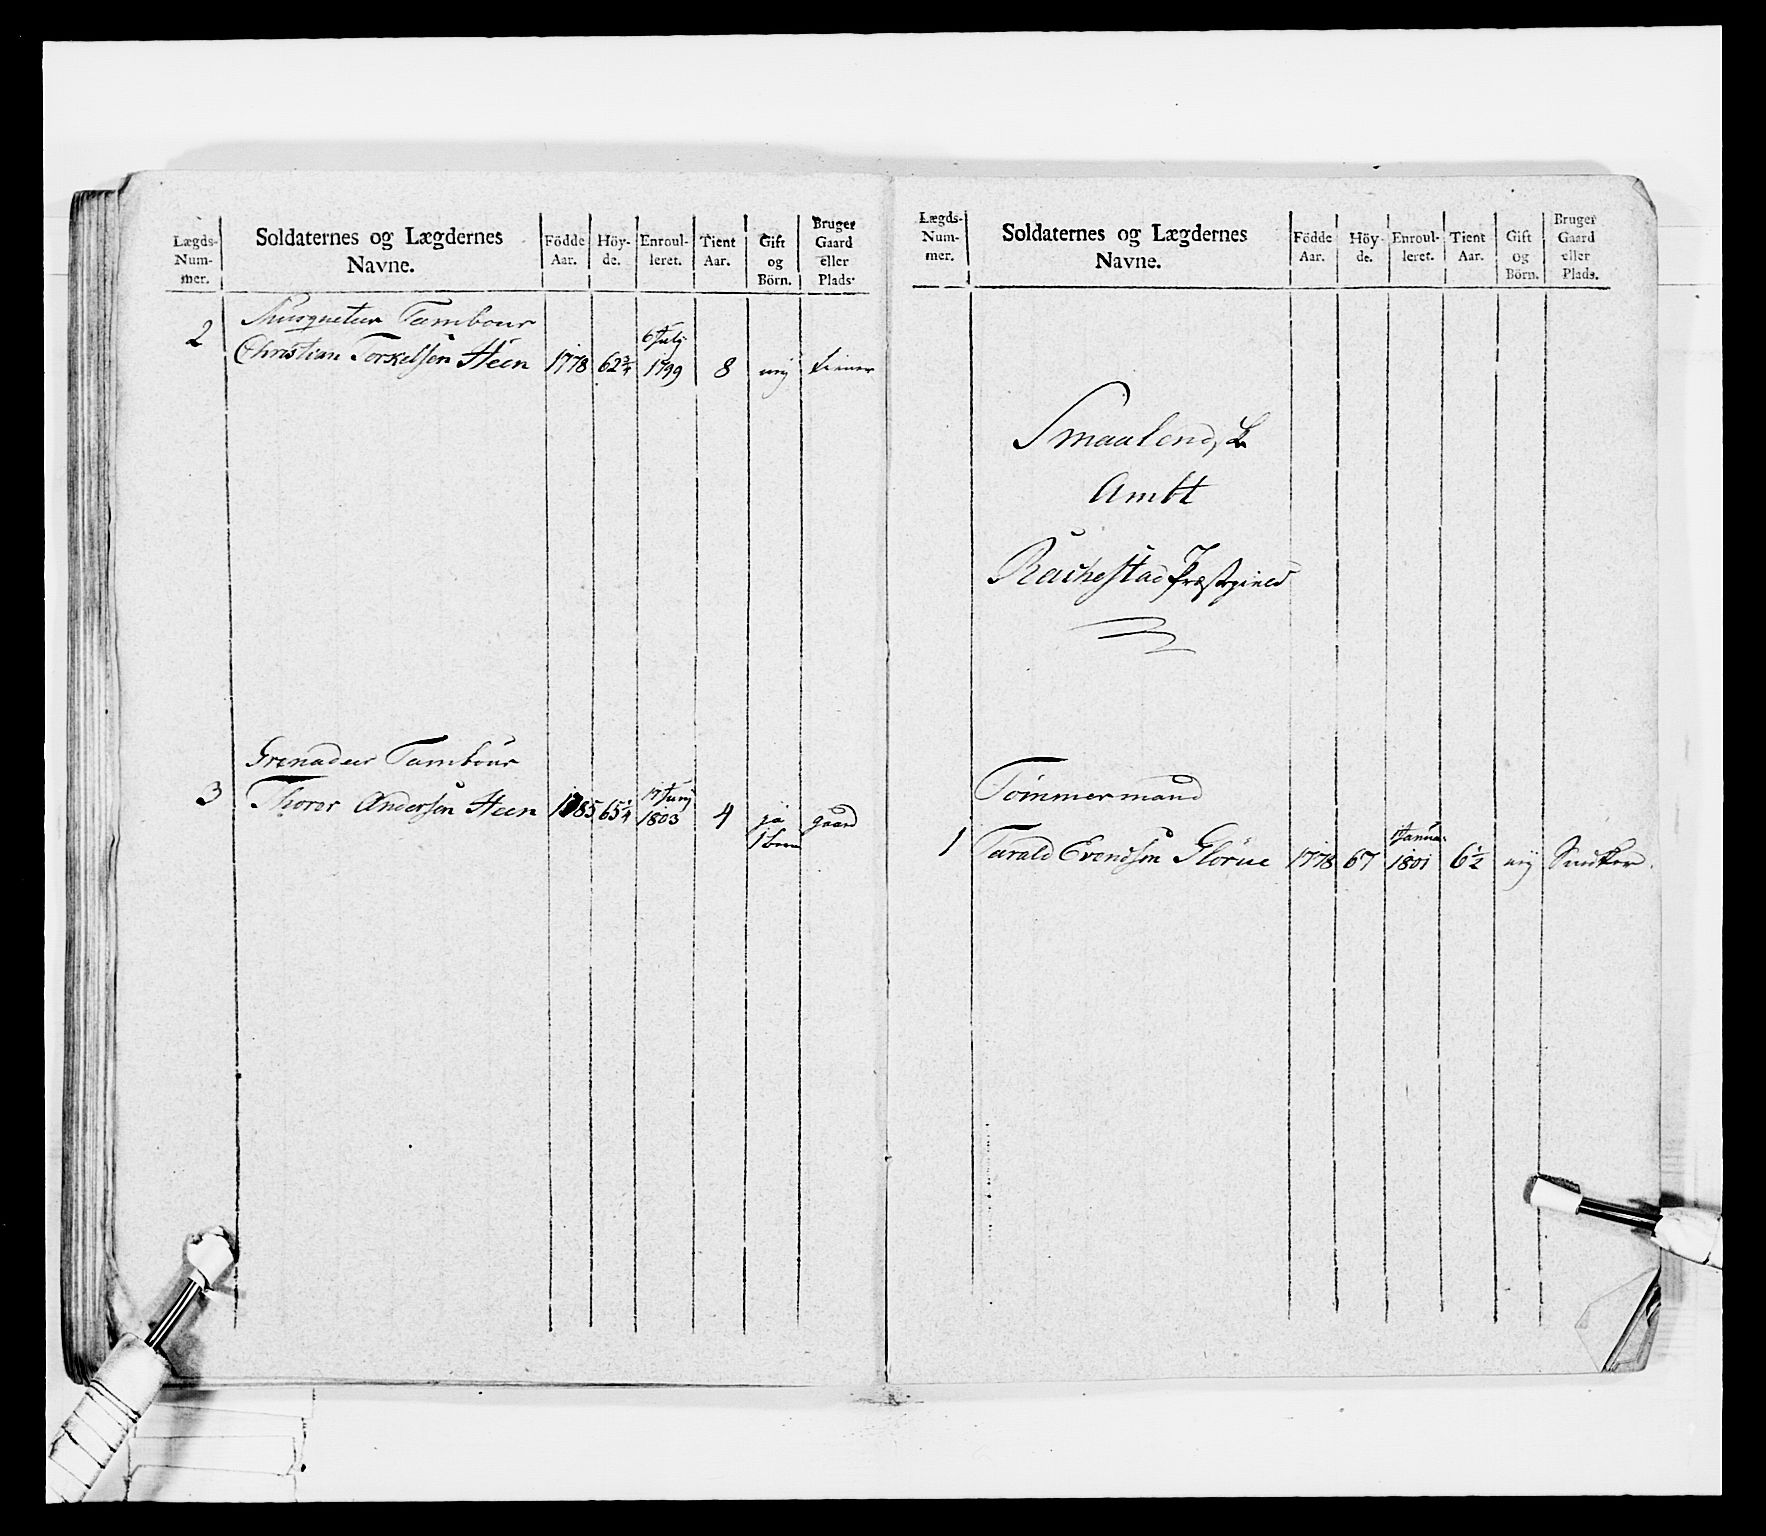 Lægds-
Num-
mer.
Soldaternes og Lægdernes
Navne.
Födde
Aar.
Höy-
de.
Enroul-
leret.
Tient
Aar.
Gift
og
Börn.
Bruger
Gaard
eller
Plads.
Musqueteur Tambour
6 July
2 Christian Torkelsen Heen 1778 62 3/4 1799 8 nij tiener
Grenadeer Tambour
17 Junij
3 Thoror Andersen Heen 1785 65 1/4 1803 4 ja gaard
1 barn
Lægds-
Num-
mer.
Soldaternes og Lægdernes
Navne.
Födde
Aar.
Höy-
de.
Enroul-
leret.
Tient
Aar.
Gift
og
Börn.
Bruger
Gaard
eller
Plads.
Smaalend,
Ambt
Rachestad Præstegield
Tømmermand
1 Janua:
1 Tarald Evendsen Glorue 1778 67 1801 6 1/2 nij